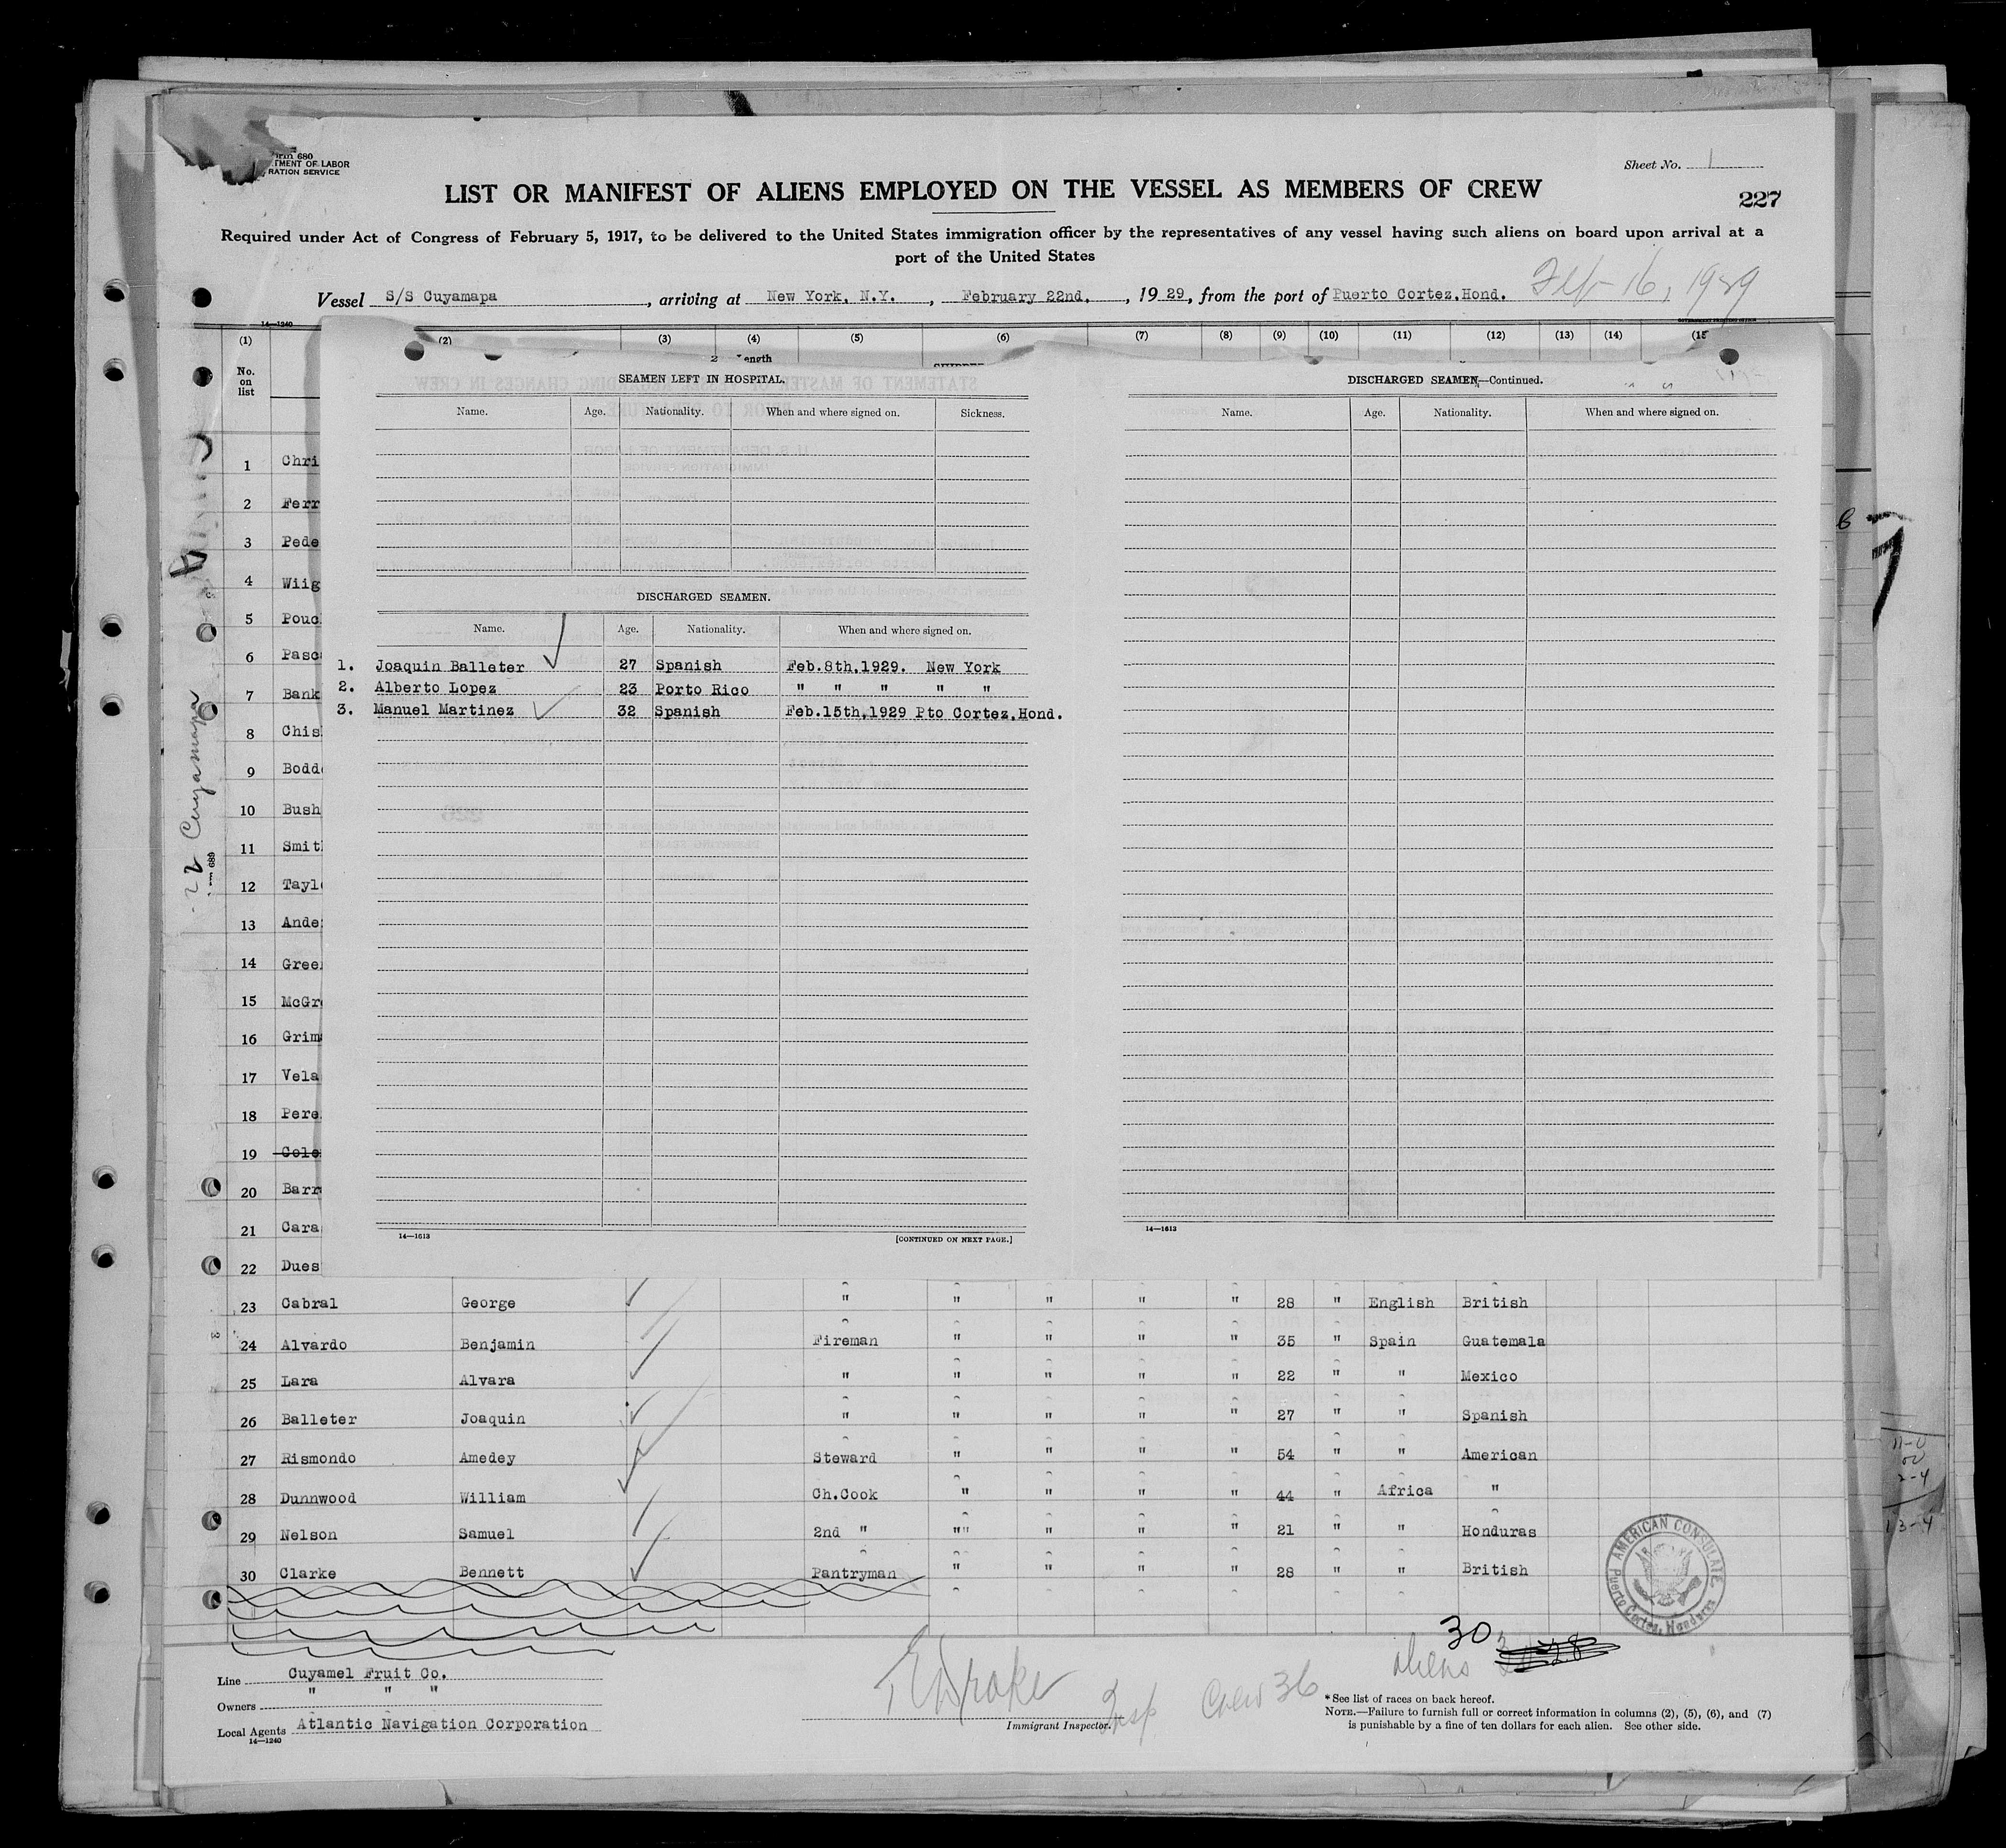 Form 680
TMENT OF LABOR
RATION SERVICE
Sheet No. 1
LIST OR MANIFEST OF ALIENS EMPLOYED ON THE VESSEL AS MEMBERS OF CREW
227
Required under Act of Congress of February 5, 1917, to be delivered to the United States immigration officer by the representatives of any vessel having such aliens on board upon arrival at a
port of the United States
Vessel S/S Cuyamapa, arriving at New York, N.Y., February 22nd, 1929, from the port of Puerto Cortez, Hond. Feb 16, 1929
14—1240
(1) (2) (3) (4) (5) (6) (7) (8) (9) (10) (11) (12) (13) (14) (15
No. on list
SEAMEN LEFT IN HOSPITAL.
Name. Age. Nationality. When and where signed on. Sickness.
DISCHARGED SEAMEN.
Name. Age. Nationality. When and where signed on.
1. Joaquin Balleter 27 Spanish Feb.8th,1929. New York
2. Alberto Lopez 23 Porto Rico " " " " "
3. Manuel Martinez 32 Spanish Feb.15th,1929 Pto Cortez,Hond.
14—1613 [CONTINUED ON NEXT PAGE.]
DISCHARGED SEAMEN—Continued.
Name. Age. Nationality. When and where signed on.
14—1613
Cuyamapa
1 Chri
2 Ferr
3 Pede
4 Wiig
5 Pouc
6 Pasc
7 Bank
8 Chis
9 Bodd
10 Bush
11 Smit
12 Tayl
13 Ande
14 Gree
15 McGr
16 Grim
17 Vela
18 Pere
19 Cole
20 Barr
21 Cara
22 Dues
23 Cabral George " " " " " 28 " English British
24 Alvardo Benjamin Fireman " " " " 35 " Spain Guatemala
25 Lara Alvara " " " " " 22 " " Mexico
26 Balleter Joaquin " " " " " 27 " " Spanish
27 Rismondo Amedey Steward " " " " 54 " " American
28 Dunnwood William Ch.Cook " " " " 44 " Africa "
29 Nelson Samuel 2nd " "" " " " 21 " " Honduras
30 Clarke Bennett Pantryman " " " " 28 " " British
AMERICAN CONSULATE
Puerto Cortes, Honduras
30
aliens
Line Cuyamel Fruit Co.
Owners " " "
Local Agents Atlantic Navigation Corporation
14—1240
Drake Insp Crew 36
Immigrant Inspector.
*See list of races on back hereof.
NOTE.—Failure to furnish full or correct information in columns (2), (5), (6), and (7)
is punishable by a fine of ten dollars for each alien. See other side.